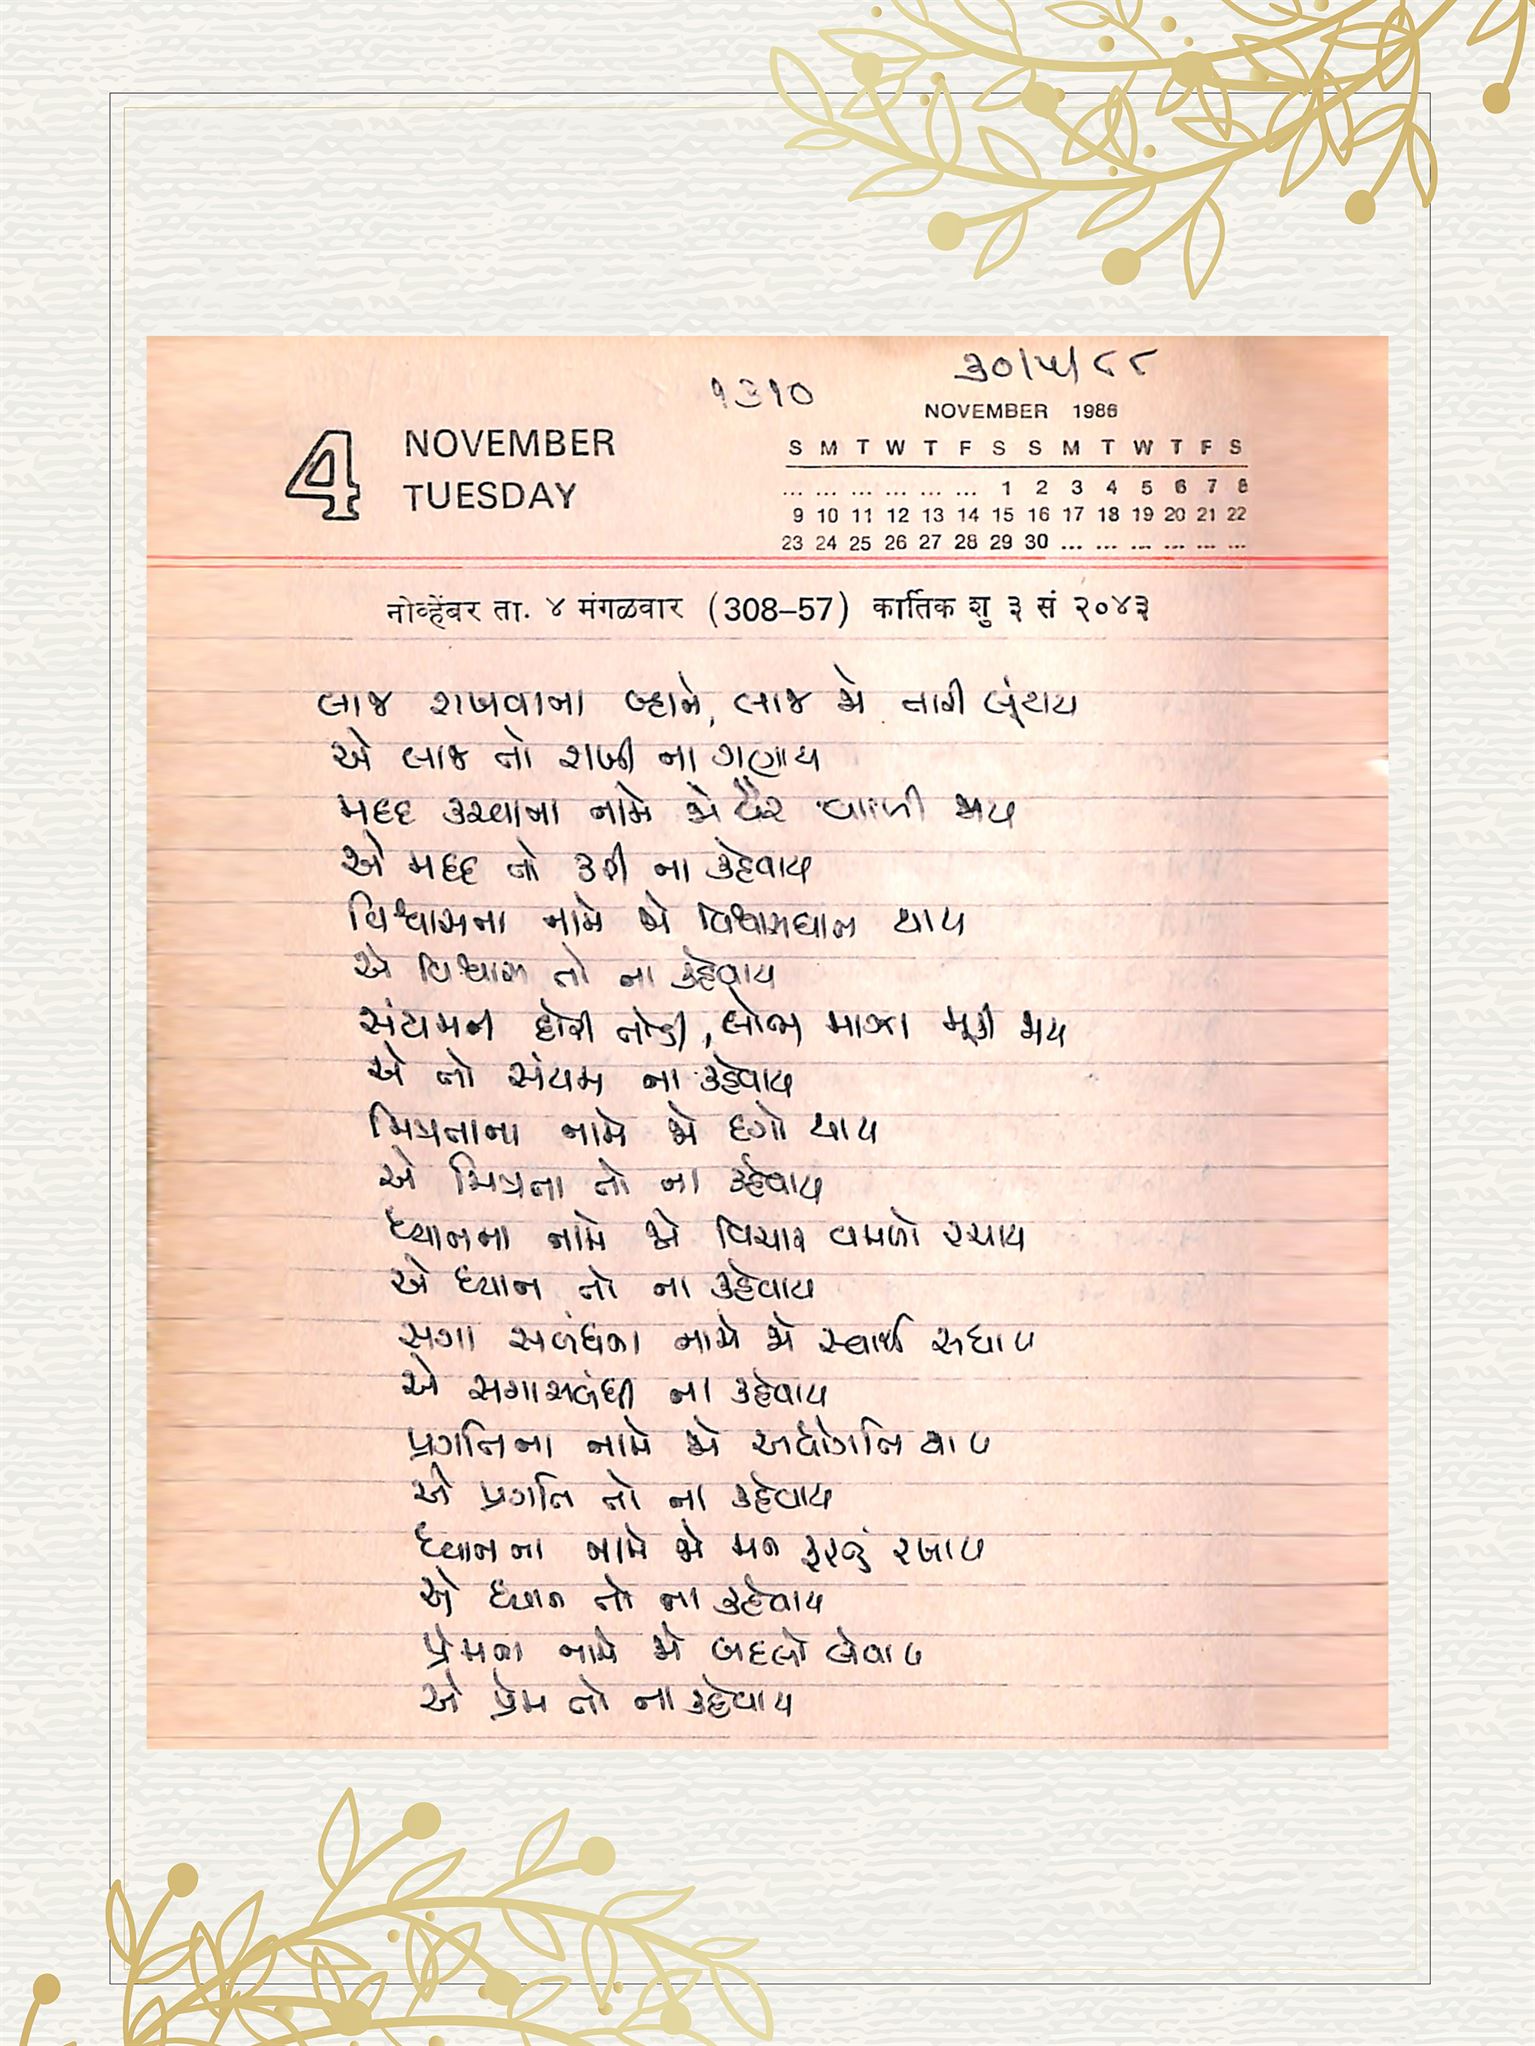 ૩૦/૫/૮૮
૧૩૧૦
NOVEMBER 1986
4 NOVEMBER
TUESDAY
S M T W T F S S M T W T F S
... ... ... ... ... ... 1 2 3 4 5 6 7 8
9 10 11 12 13 14 15 16 17 18 19 20 21 22
23 24 25 26 27 28 29 30 ... ... ... ... ... ...
नोव्हेंबर ता. ४ मंगळवार (308–57) कार्तिक शु ३ सं २०४३
લાજ રાખવાના બ્હાને, લાજ જો તારી લૂંટાય
એ લાજ તો રાખી ના ગણાય
મદદ કરવાના નામે જો વૈર વાળી જાય
એ મદદ તો કરી ના કહેવાય
વિશ્વાસના નામે જો વિશ્વાસઘાત થાય
એ વિશ્વાસ તો ના કહેવાય
સંયમની દોરી તોડી, લોભ માઝા મૂકી જાય
એ તો સંયમ ના કહેવાય
મિત્રતાના નામે જો દગો થાય
એ મિત્રતા તો ના કહેવાય
ધ્યાનના નામે જો વિચાર વમળો રચાય
એ ધ્યાન તો ના કહેવાય
સગા સબંધના નામે જો સ્વાર્થ સધાય
એ સગાસબંધી ના કહેવાય
પ્રગતિના નામે જો અધોગતિ થાય
એ પ્રગતિ તો ના કહેવાય
ધ્યાનના નામે જો મન ફરતું રખાય
એ ધ્યાન તો ના કહેવાય
પ્રેમના નામે જો બદલો લેવાય
એ પ્રેમ તો ના કહેવાય